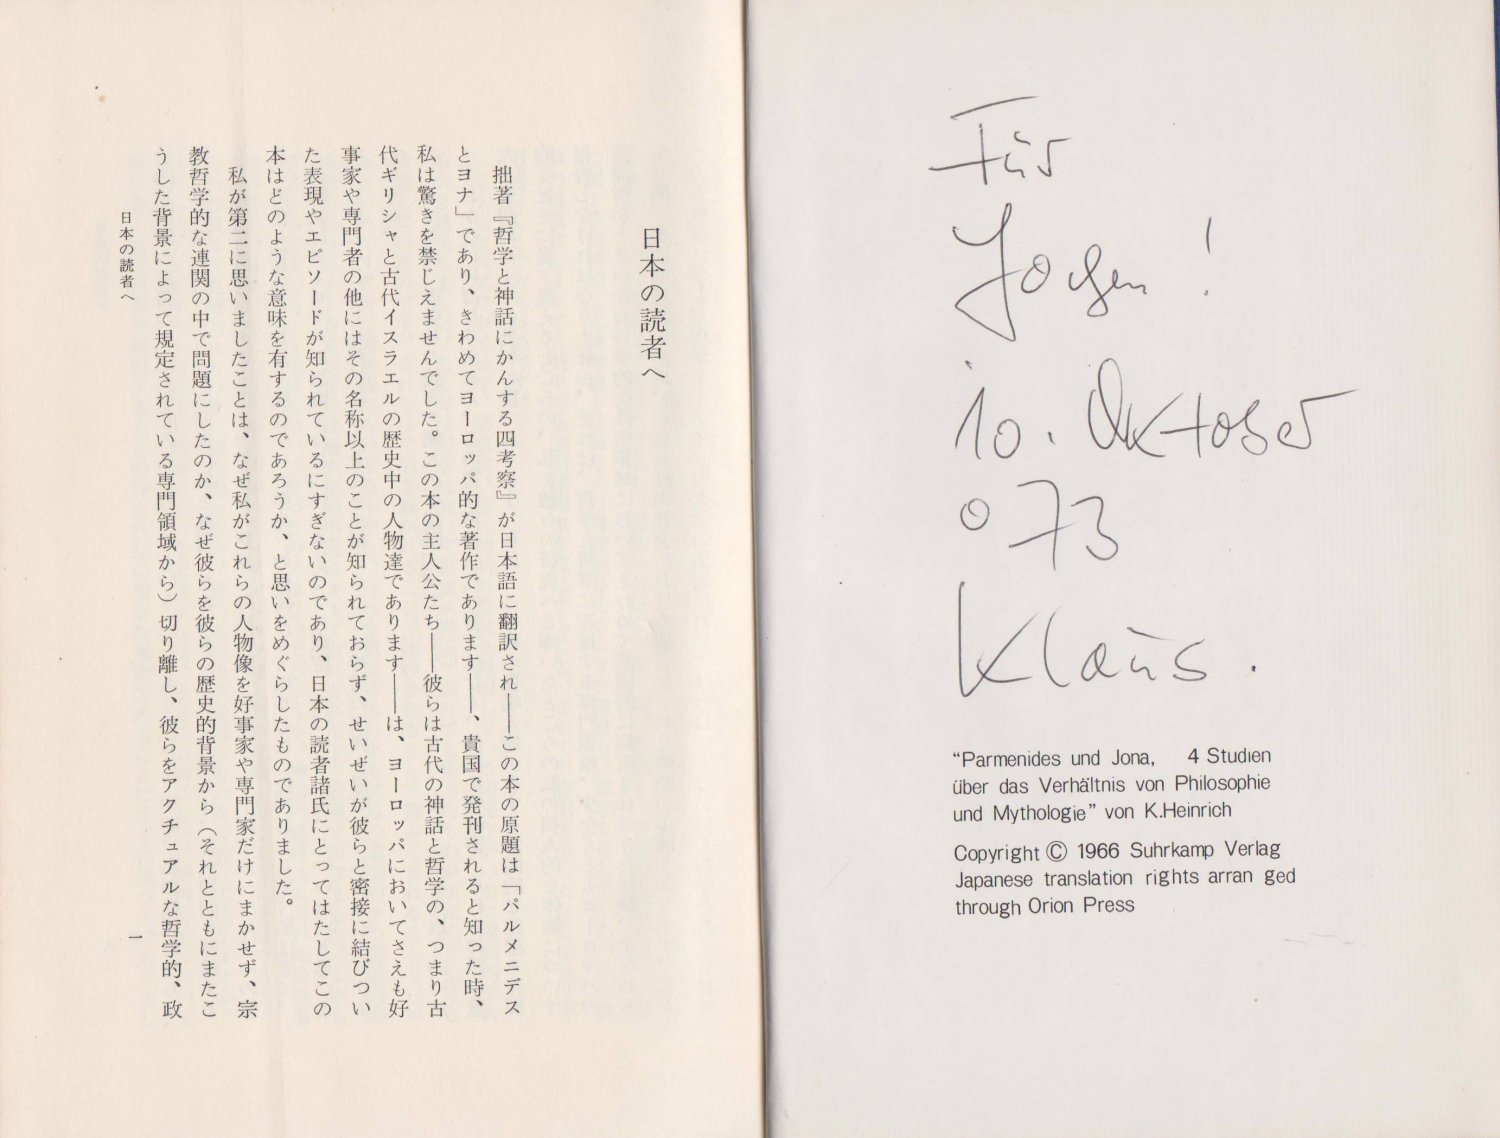 Für
Jochen!
10. Oktober
073
Klaus.
“Parmenides und Jona, 4 Studien
über das Verhältnis von Philosophie
und Mythologie” von K.Heinrich
Copyright © 1966 Suhrkamp Verlag
Japanese translation rights arran ged
through Orion Press
日本の読者へ
拙著『哲学と神話にかんする四考察』が日本語に翻訳され――この本の原題は「パルメニデス
とヨナ」であり、きわめてヨーロッパ的な著作であります――、貴国で発刊されると知った時、
私は驚きを禁じえませんでした。この本の主人公たち――彼らは古代の神話と哲学の、つまり古
代ギリシャと古代イスラエルの歴史中の人物達であります――は、ヨーロッパにおいてさえも好
事家や専門者の他にはその名称以上のことが知られておらず、せいぜいが彼らと密接に結びつい
た表現やエピソードが知られているにすぎないのであり、日本の読者諸氏にとってはたしてこの
本はどのような意味を有するのであろうか、と思いをめぐらしたものでありました。
私が第二に思いましたことは、なぜ私がこれらの人物像を好事家や専門家だけにまかせず、宗
教哲学的な連関の中で問題にしたのか、なぜ彼らを彼らの歴史的背景から（それとともにまたこ
うした背景によって規定されている専門領域から）切り離し、彼らをアクチュアルな哲学的、政
日本の読者へ
一